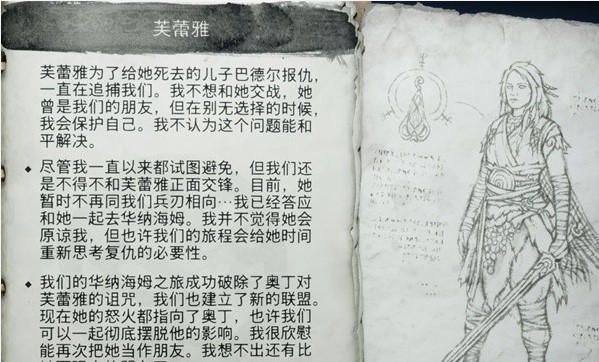 芙蕾雅
芙蕾雅为了给她死去的儿子巴德尔报仇，
一直在追捕我们。我不想和她交战，她
曾是我们的朋友，但在别无选择的时候，
我会保护自己。我不认为这个问题能和
平解决。
◆ 尽管我一直以来都试图避免，但我们还
是不得不和芙蕾雅正面交锋。目前，她
暂时不再同我们兵刃相向…我已经答应
和她一起去华纳海姆。我并不觉得她会
原谅我，但也许我们的旅程会给她时间
重新思考复仇的必要性。
◆ 我们的华纳海姆之旅成功破除了奥丁对
芙蕾雅的诅咒，我们也建立了新的联盟。
现在她的怒火都指向了奥丁，也许我们
可以一起彻底摆脱他的影响。我很欣慰
能再次把她当作朋友。我想不出还有比